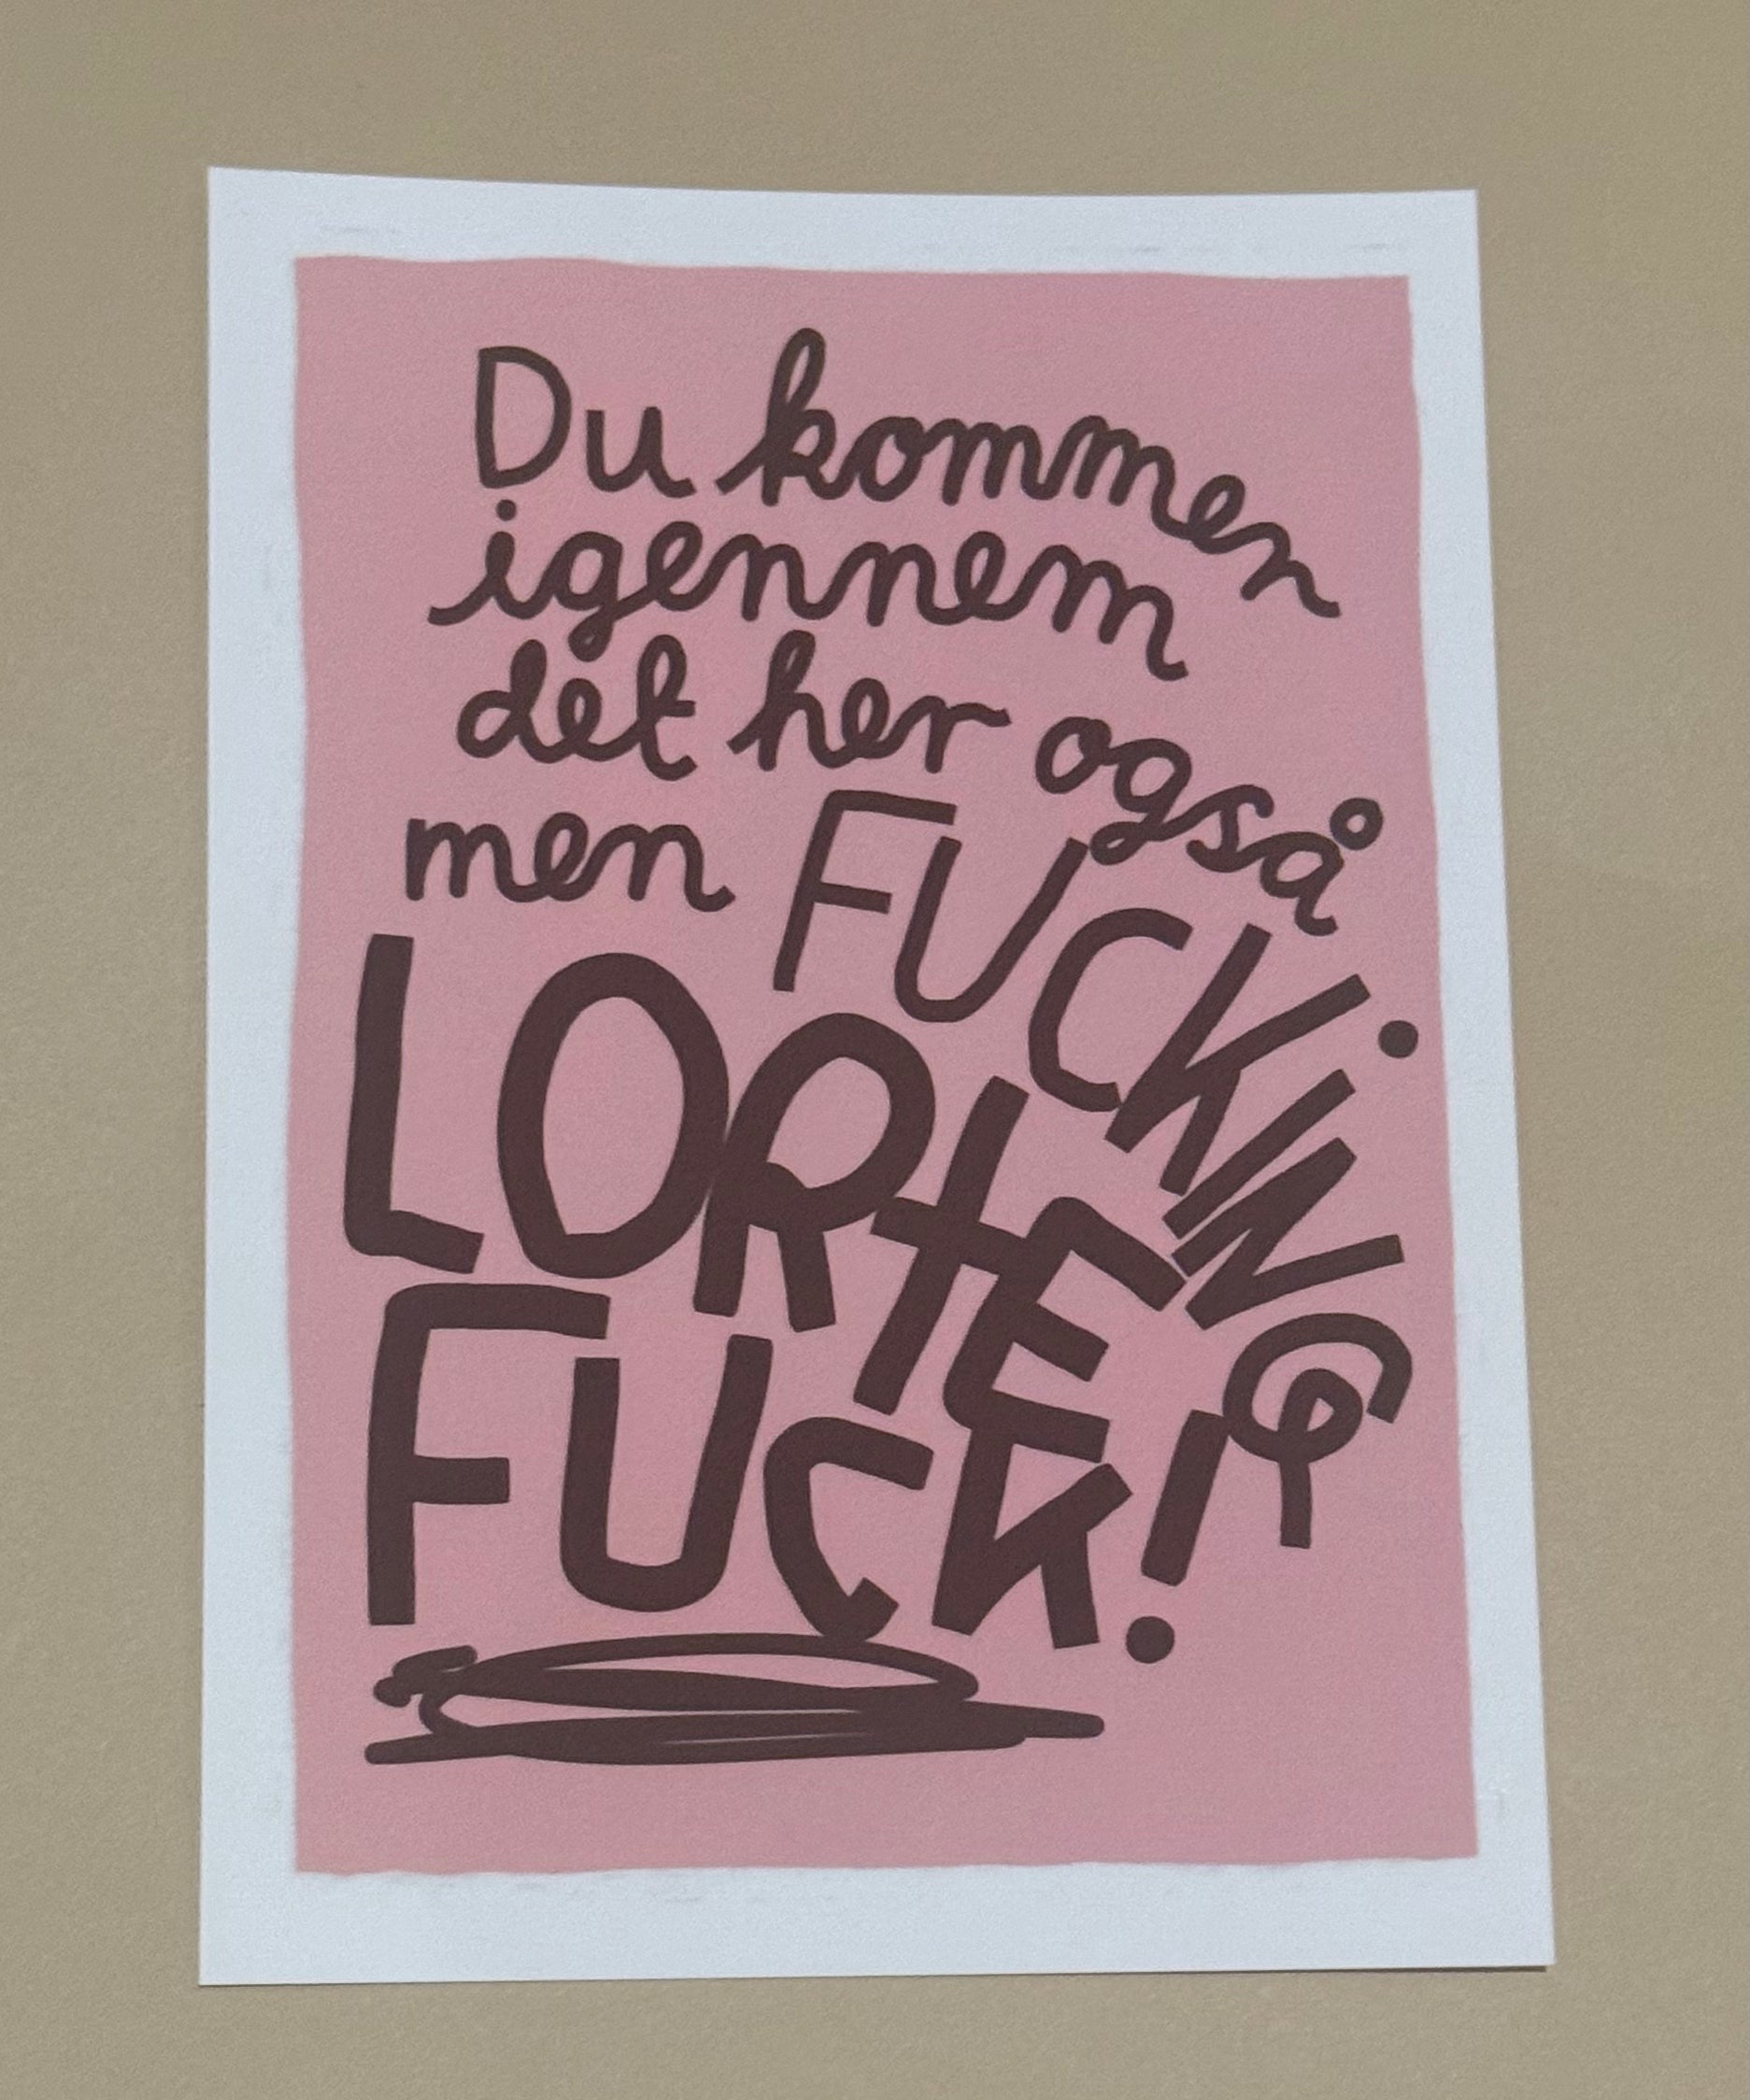 Du kommer
igennem
det her også
men FUCKiNG
LORTE
FUCK!